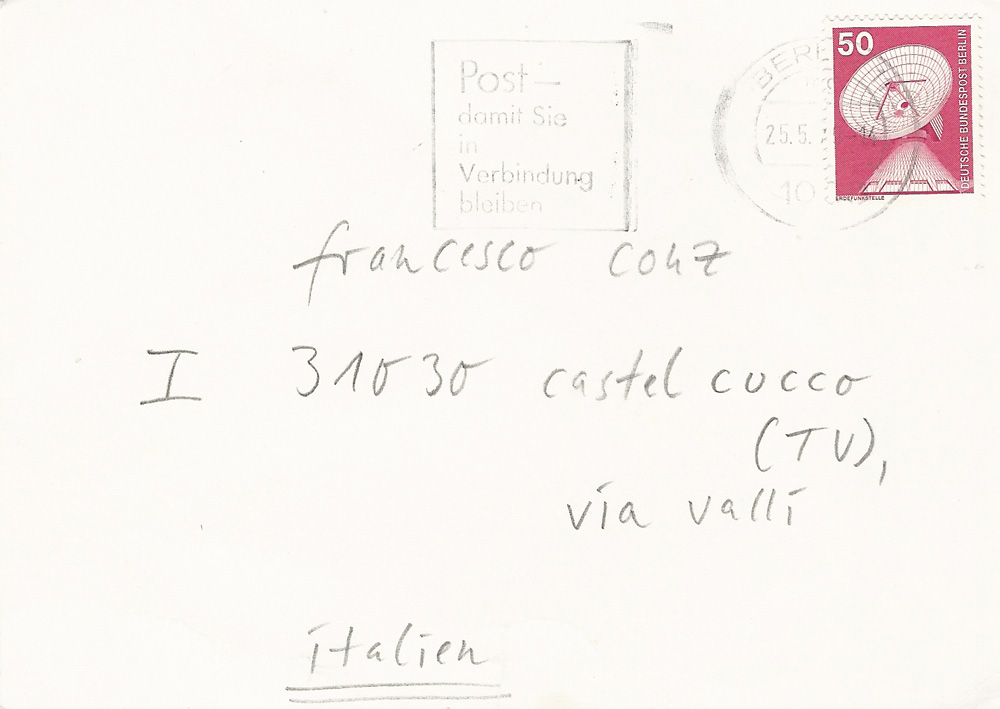 Post –
damit Sie
in
Verbindung
bleiben
25.5.
50
DEUTSCHE BUNDESPOST BERLIN
ERDEFUNKSTELLE
francesco conz
I 31030 castel cucco
(TV),
via valli
italien